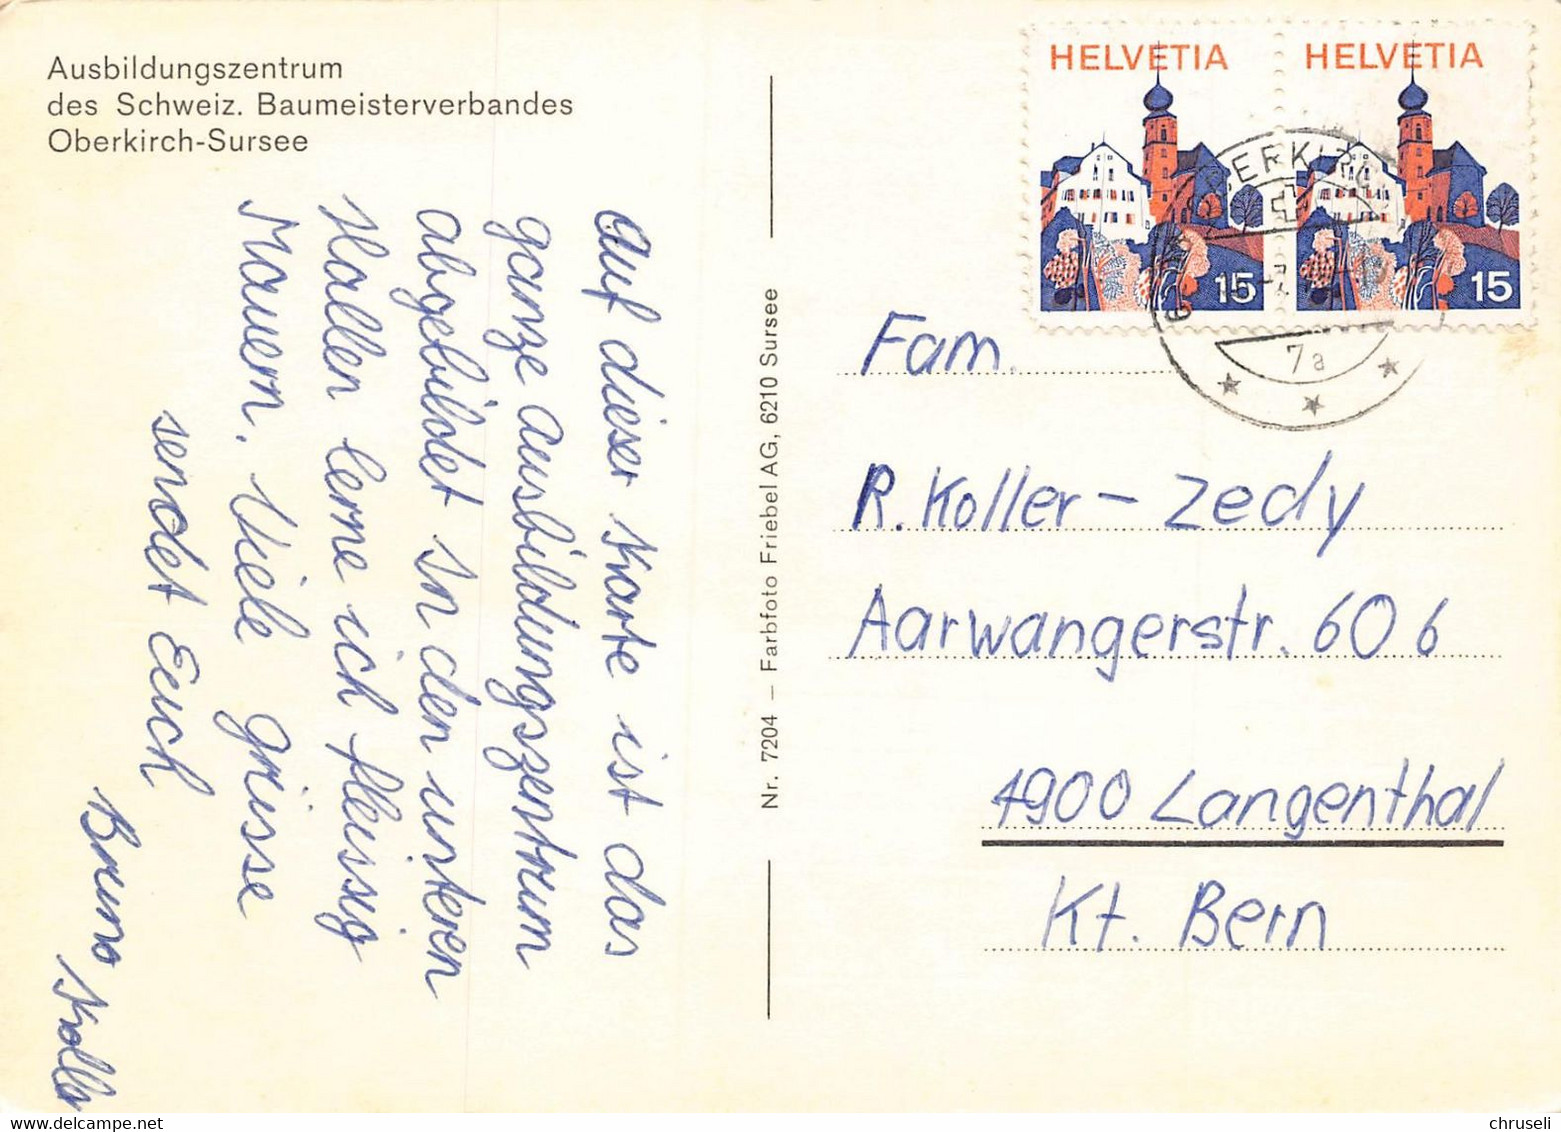 Ausbildungszentrum
des Schweiz. Baumeisterverbandes
Oberkirch-Sursee
Auf dieser Karte ist das
ganze Ausbildungszentrum
abgebildet In den unteren
Hallen lerne ich fleissig
Mauern. Viele grüsse
sendet Euch
Bruno Koller
Nr. 7204 — Farbfoto Friebel AG, 6210 Sursee
HELVETIA
15
HELVETIA
15
7a
Fam.
R. Koller – Zedy
Aarwangerstr. 606
4900 Langenthal
Kt. Bern
chruseli